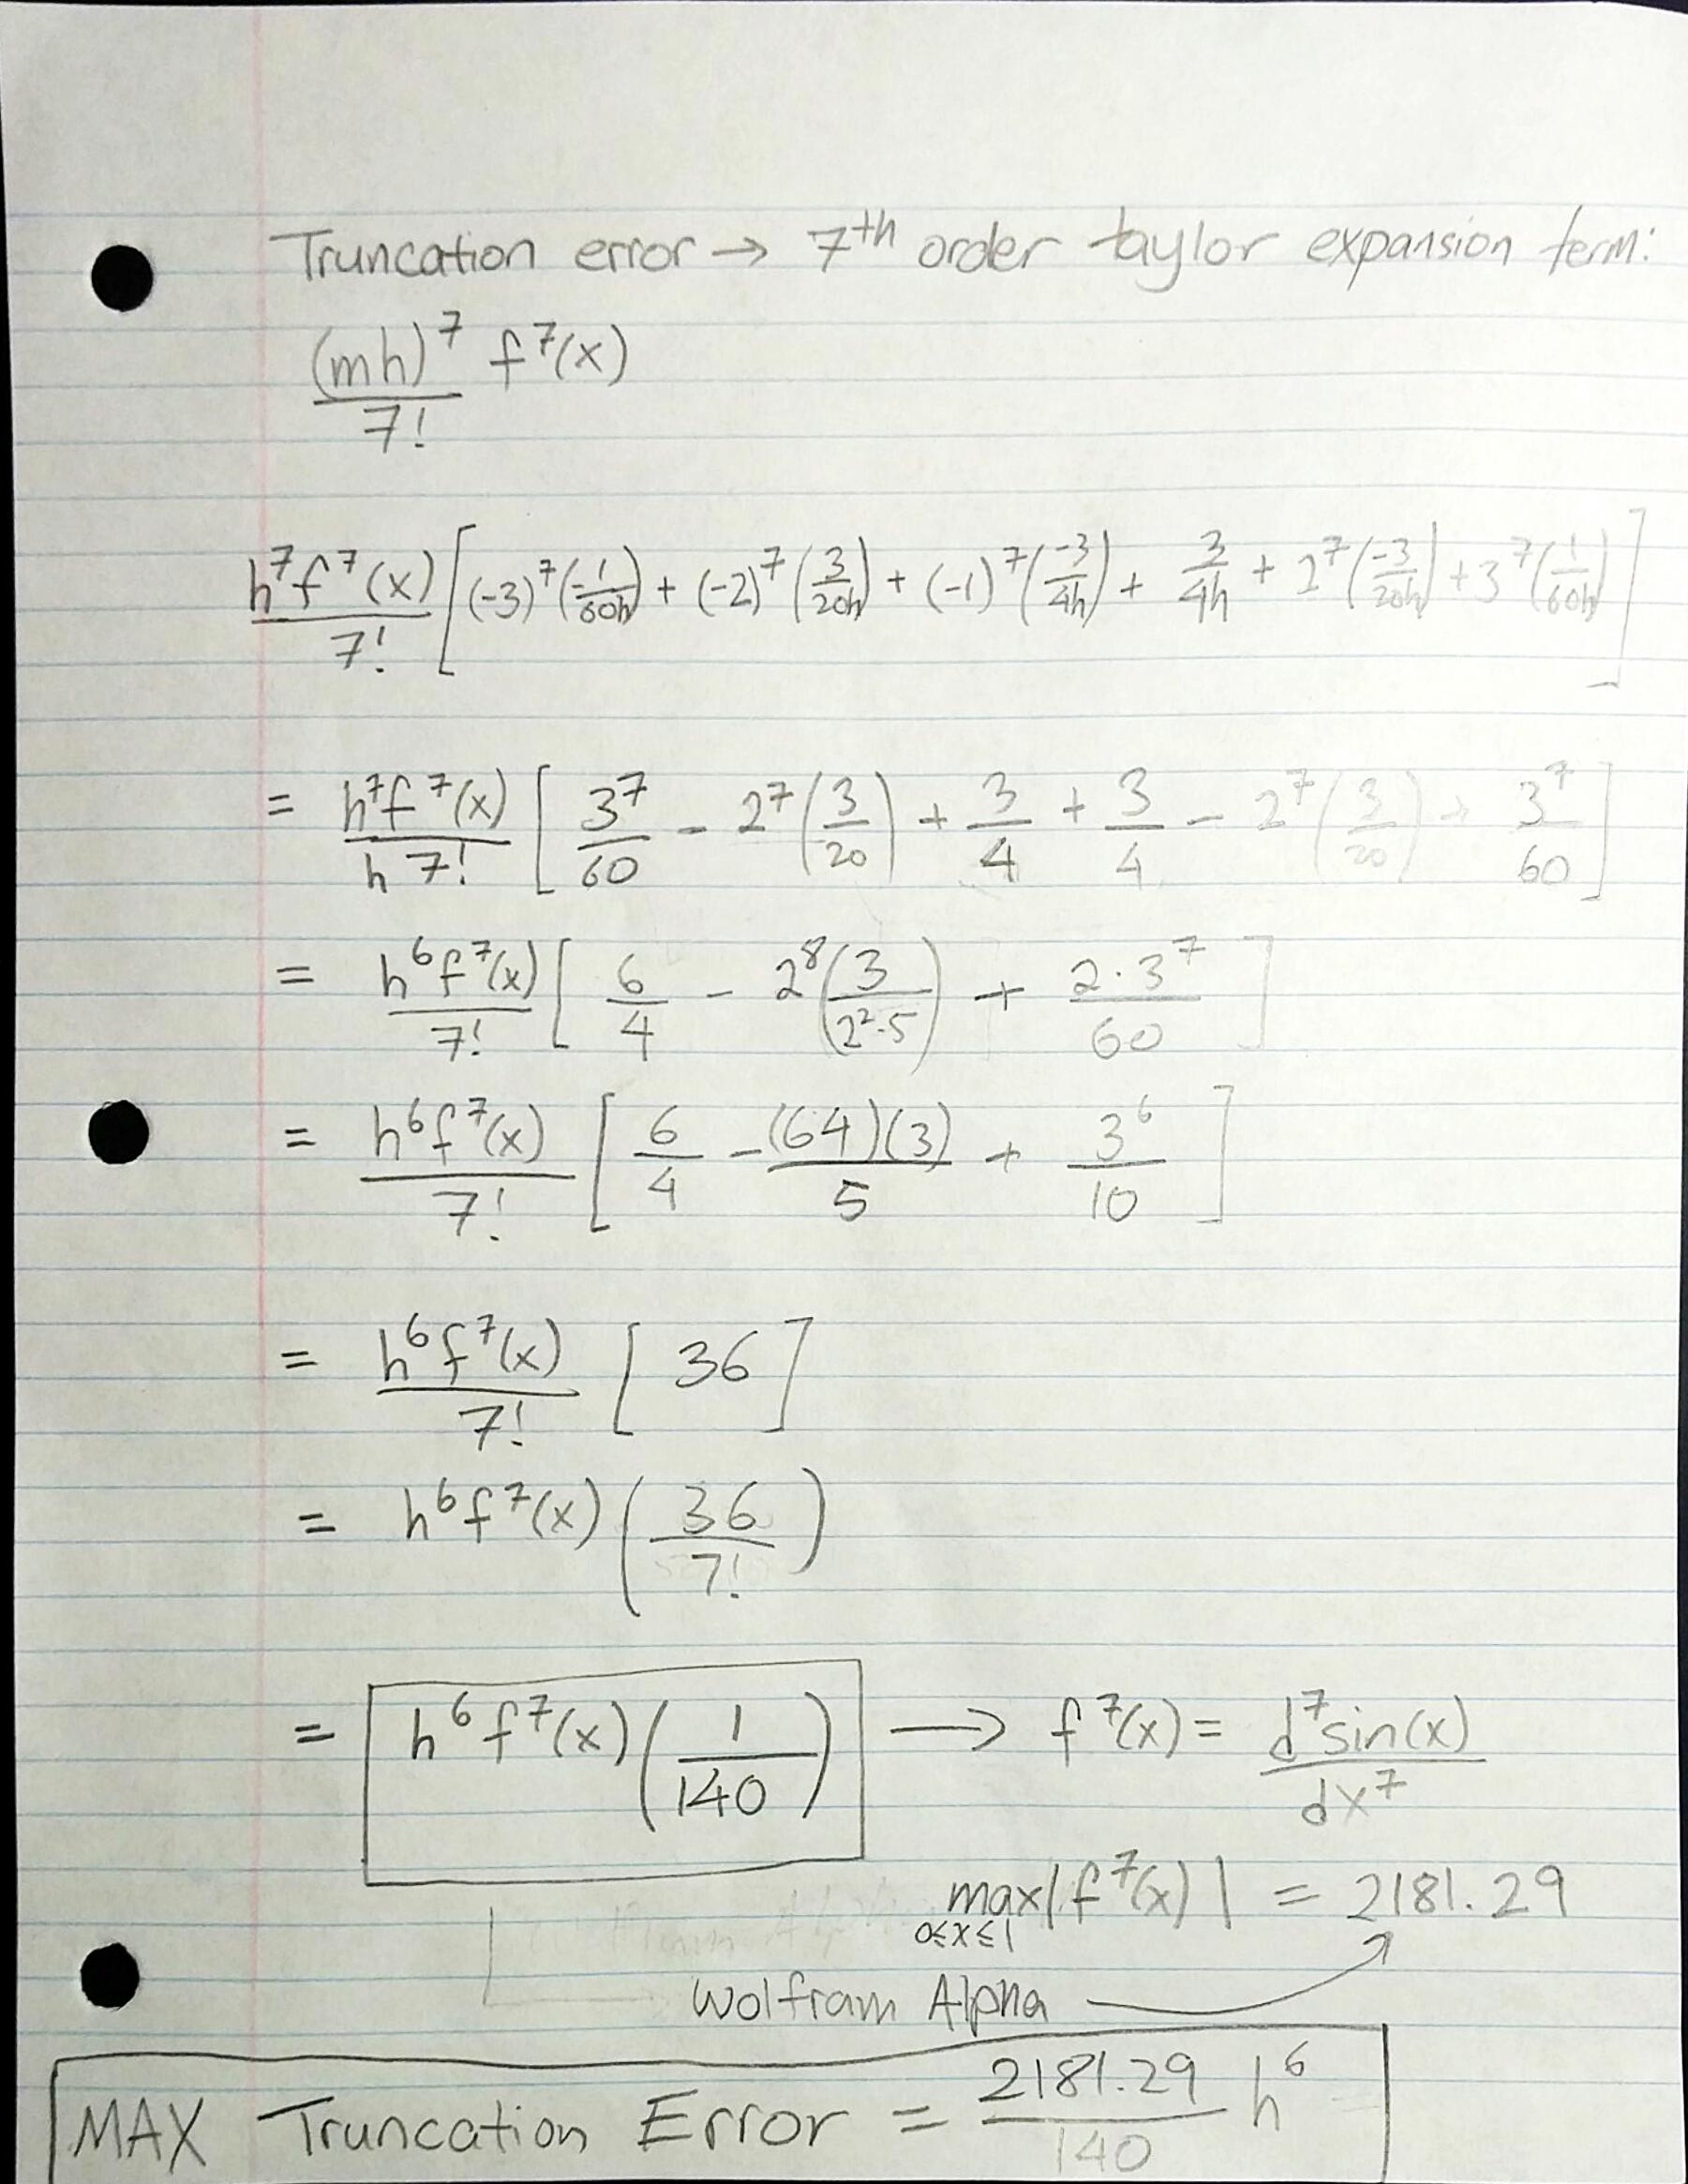 Truncation error → 7th order taylor expansion term:
(mh)^7/7! f^7(x)
h^7f^7(x)/7! [(-3)^7(-1/60h) + (-2)^7(3/20h) + (-1)^7(-3/4h) + 3/4h + 2^7(-3/20h) + 3^7(1/60h)]
= h^7f^7(x)/h 7! [3^7/60 - 2^7(3/20) + 3/4 + 3/4 - 2^7(3/20) + 3^7/60]
= h^6f^7(x)/7! [6/4 - 2^8(3/2^2·5) + 2·3^7/60]
= h^6f^7(x)/7! [6/4 - (64)(3)/5 + 3^6/10]
= h^6f^7(x)/7! [36]
= h^6f^7(x)(36/7!)
= h^6f^7(x)(1/140) → f^7(x) = d^7sin(x)/dx^7
max|f^7(x)| = 2181.29
0≤x≤1
Wolfram Alpha
MAX Truncation Error = 2181.29/140 h^6